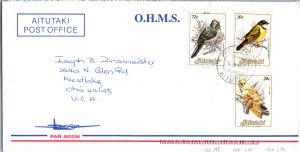 AITUTAKI
POST OFFICE
O.H.M.S.
Joseph B. Zinsmeister
Glen Rd
Westlake
Ohio 44145
U.S.A.
72c
Aitutaki
Aitutaki
Aitutaki
PAR AVION